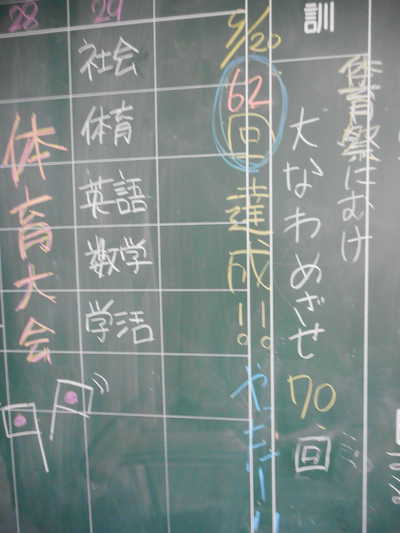 訓
体育祭にむけ
大なわめざせ70回
9/20
62回達成!!
やったー!!
29
社会
体育
英語
数学
学活
28
体育大会